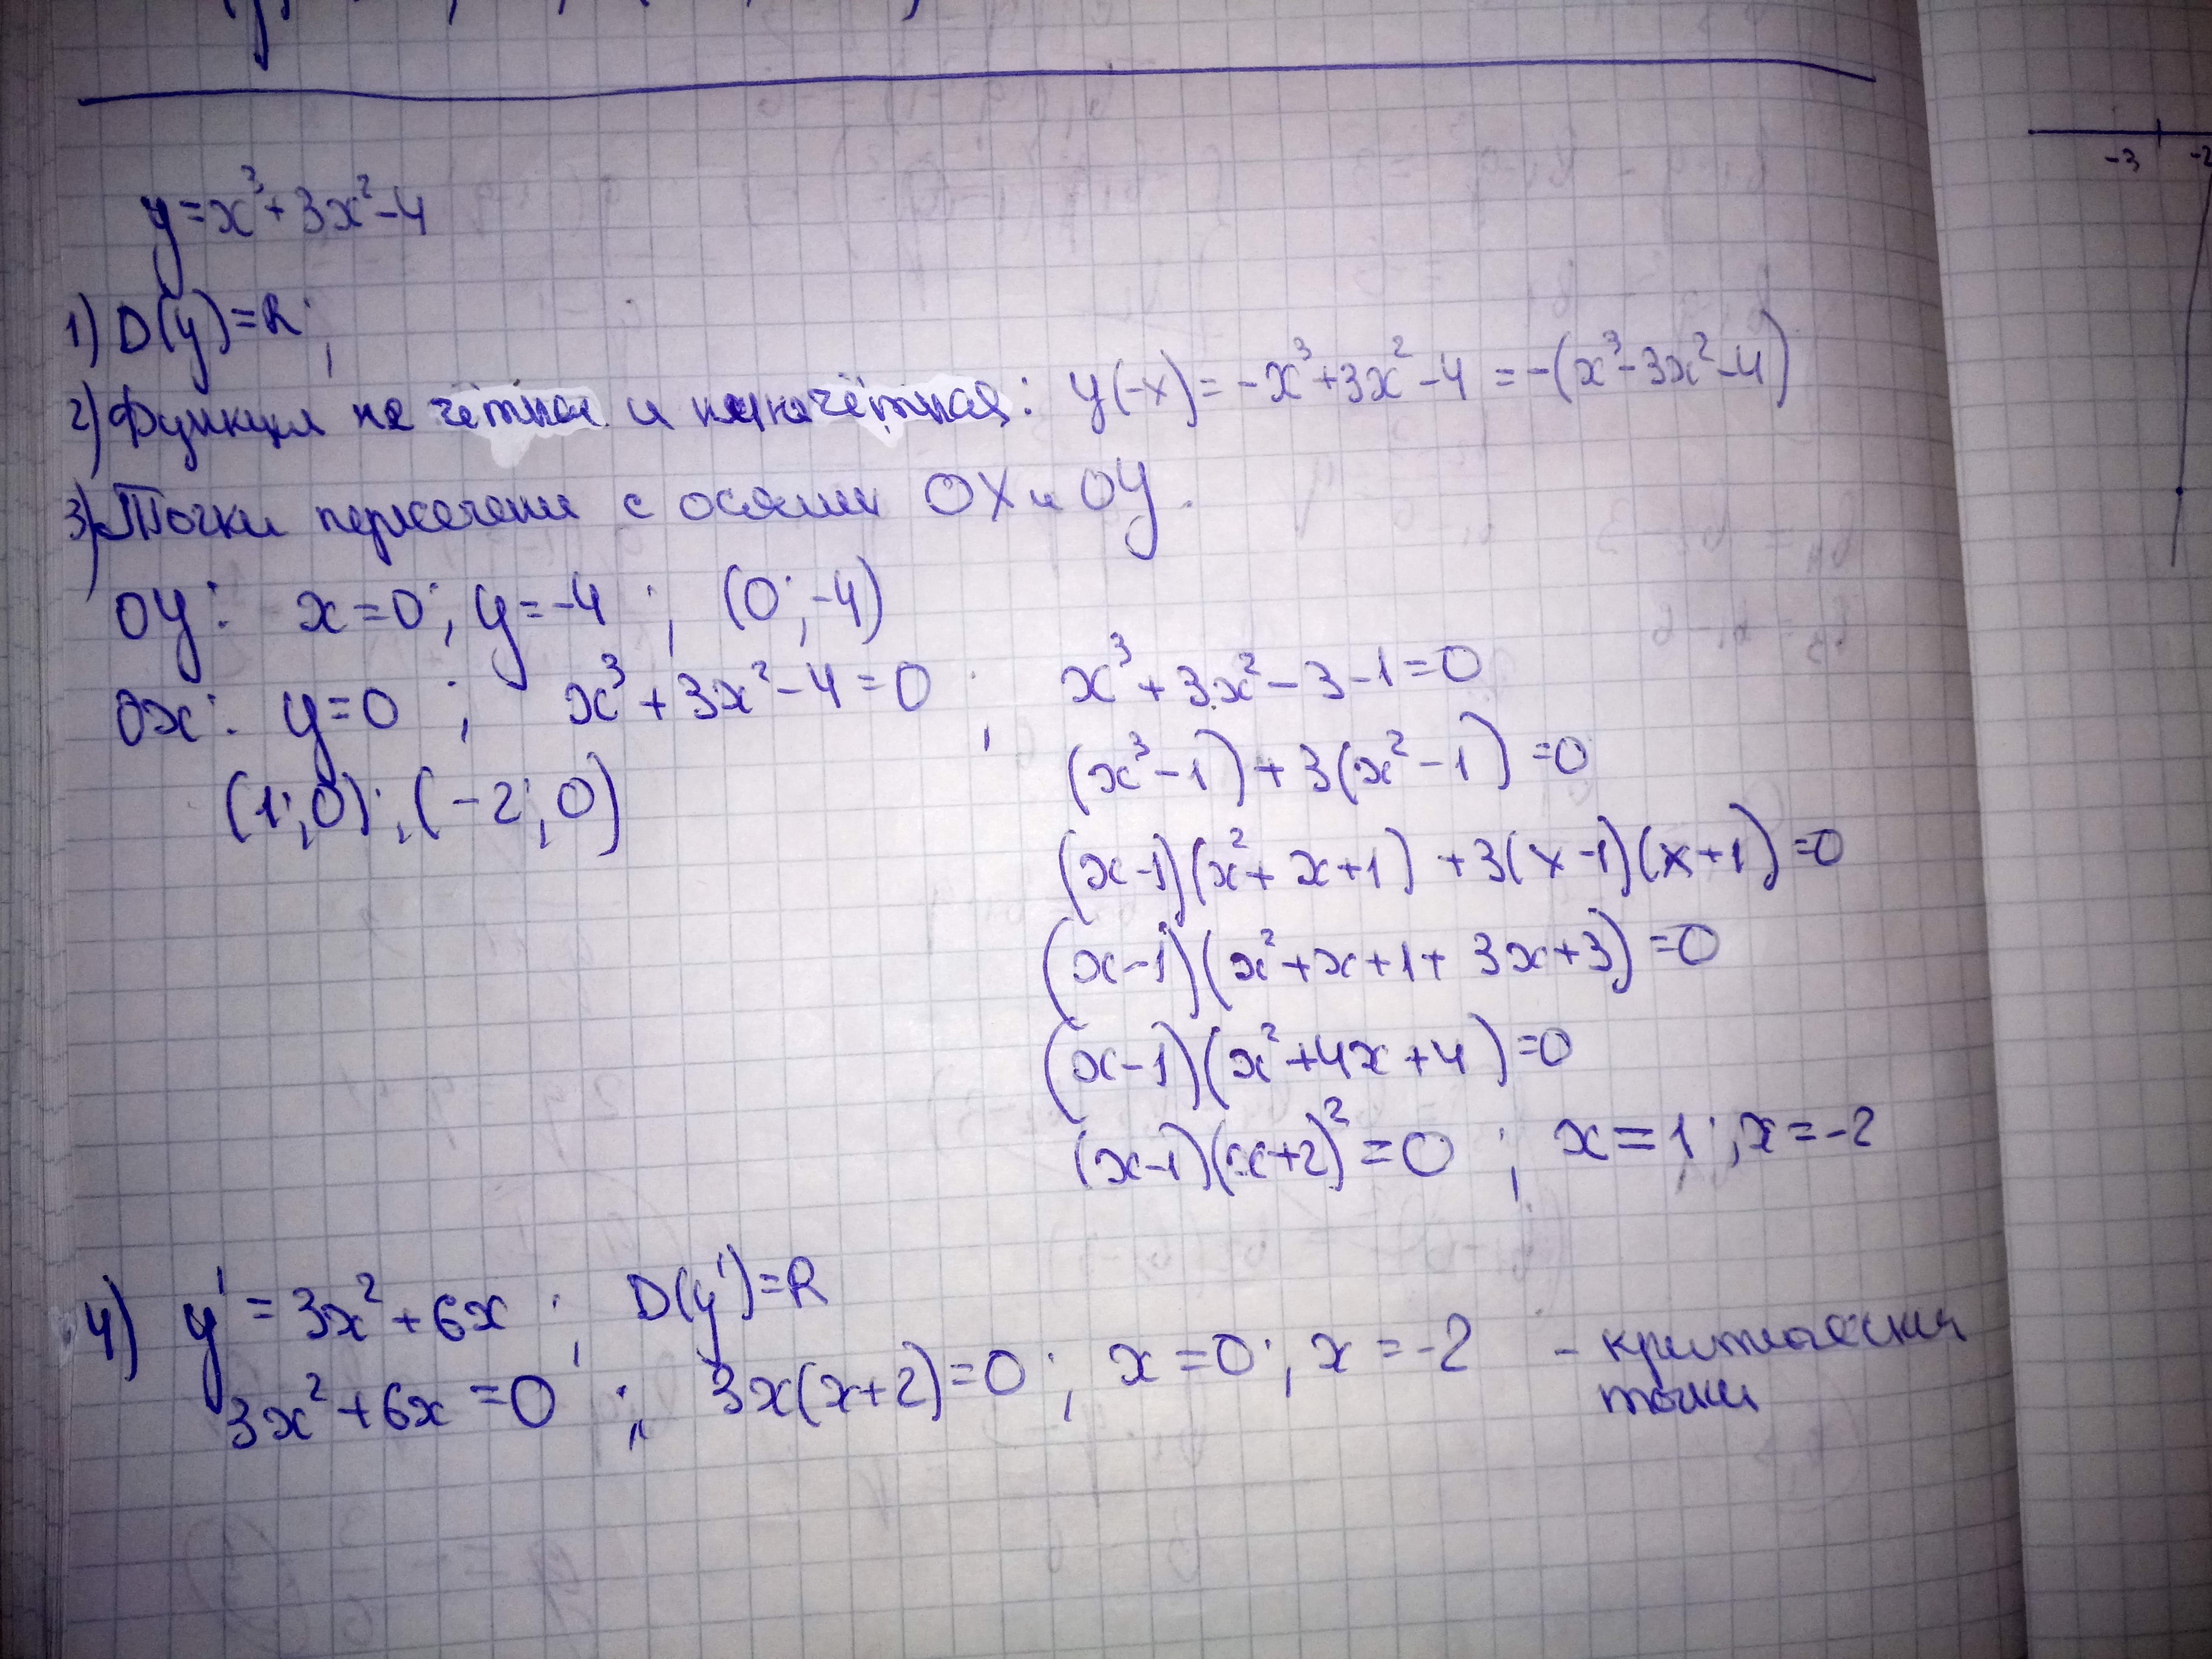 y=x³+3x²-4
1) D(y)=R;
2) Функция не чётная и не нечётная: y(-x)=-x³+3x²-4=-(x³-3x²-4)
3) Точки пересечения с осями OX и OY.
OY: x=0; y=-4; (0;-4)
OX: y=0; x³+3x²-4=0; x³+3x²-3-1=0
(x³-1)+3(x²-1)=0
(1;0); (-2;0)
(x-1)(x²+x+1)+3(x-1)(x+1)=0
(x-1)(x²+x+1+3x+3)=0
(x-1)(x²+4x+4)=0
(x-1)(x+2)²=0; x=1; x=-2
4) y'=3x²+6x; D(y')=R
3x²+6x=0; 3x(x+2)=0; x=0; x=-2 - критические
точки
-3 -2